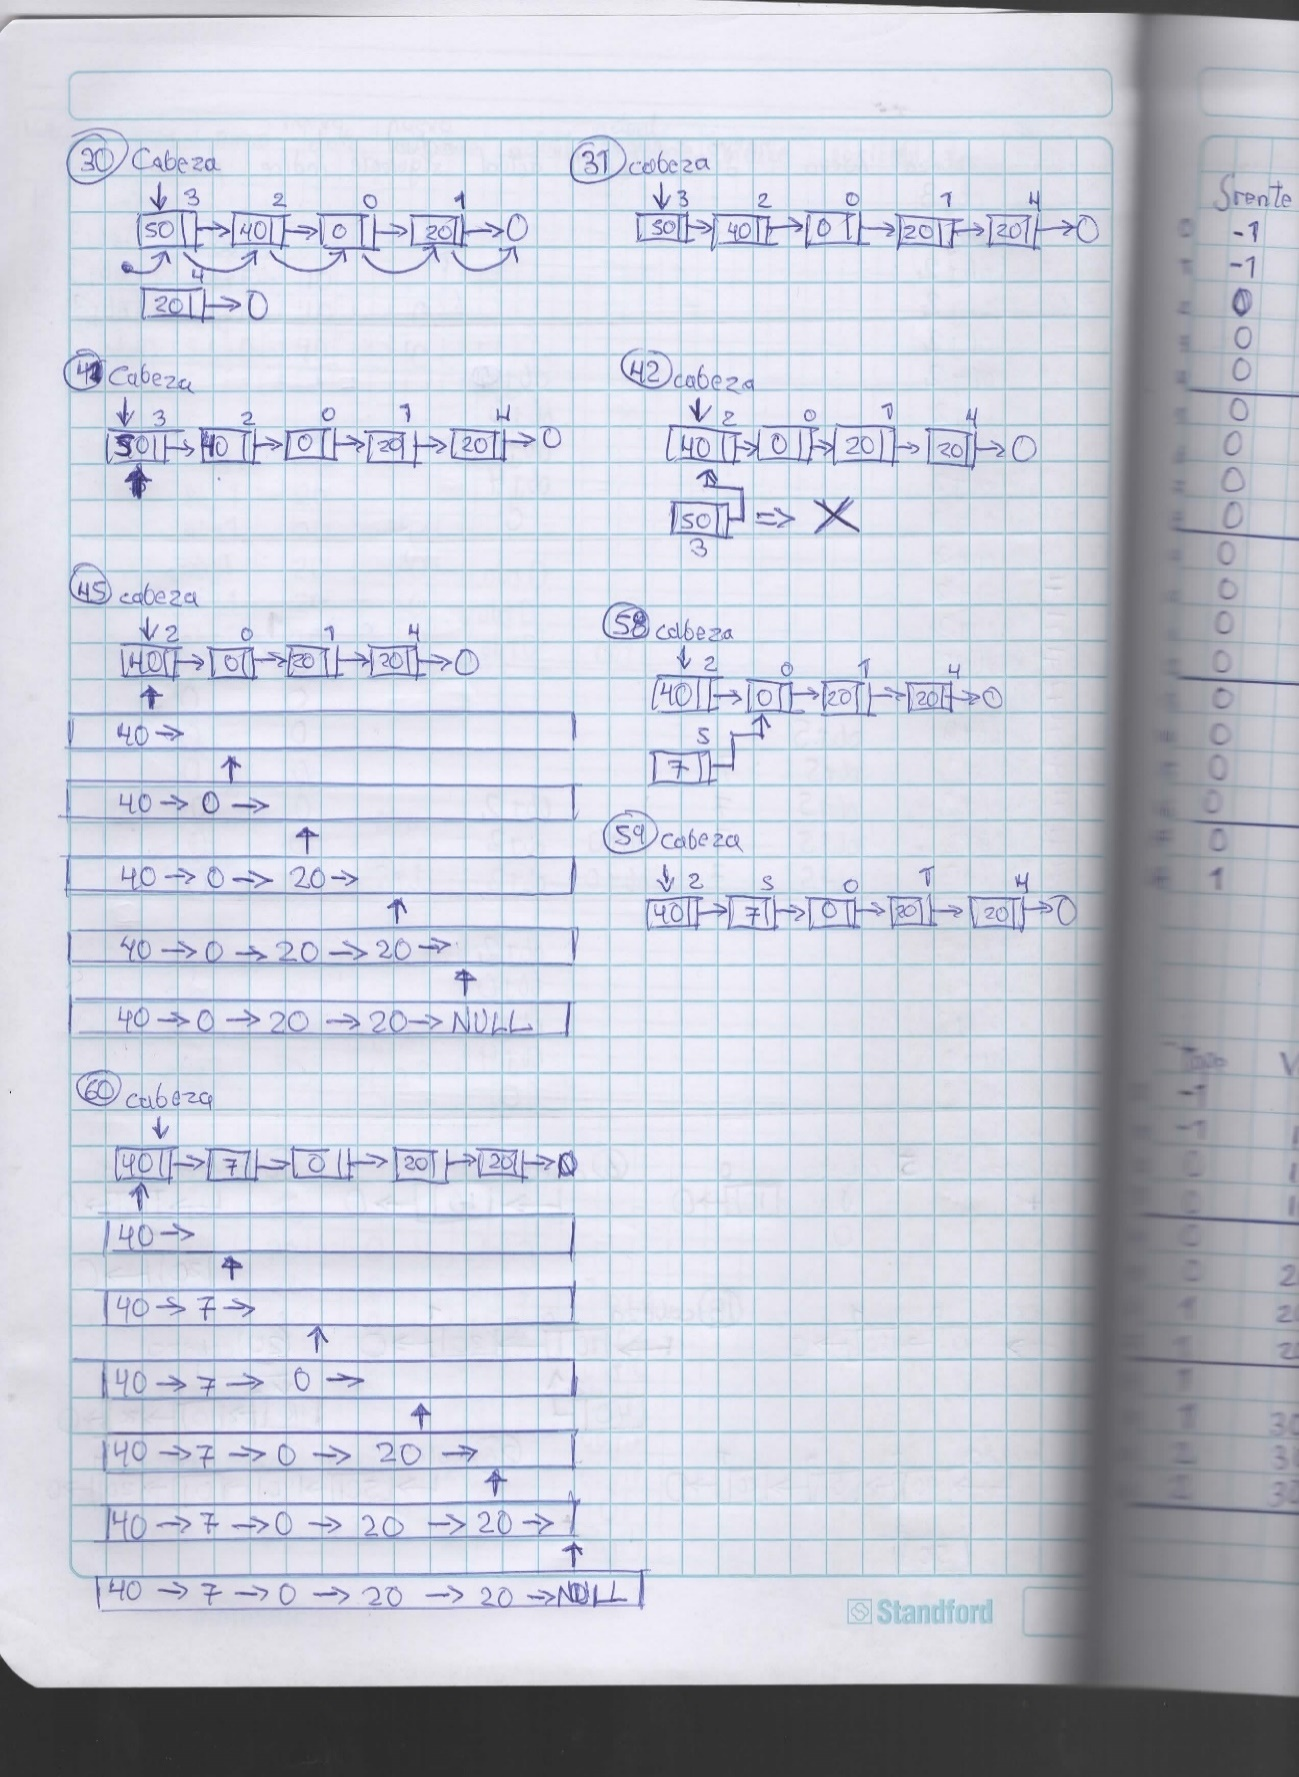 30 Cabeza
3 2 0 1
50 → 40 → 0 → 20 → 0
4
20 → 0
31 cabeza
3 2 0 1 4
50 → 40 → 0 → 20 → 20 → 0
41 Cabeza
3 2 0 1 4
50 → 40 → 0 → 20 → 20 → 0
42 cabeza
2 0 1 4
40 → 0 → 20 → 20 → 0
50 => X
3
45 cabeza
2 0 1 4
40 → 0 → 20 → 20 → 0
40 →
40 → 0 →
40 → 0 → 20 →
40 → 0 → 20 → 20 →
40 → 0 → 20 → 20 → NULL
58 cabeza
2 0 1 4
40 → 0 → 20 → 20 → 0
5
7
59 cabeza
2 5 0 1 4
40 → 7 → 0 → 20 → 20 → 0
60 cabeza
40 → 7 → 0 → 20 → 20 → 0
40 →
40 → 7 →
40 → 7 → 0 →
40 → 7 → 0 → 20 →
40 → 7 → 0 → 20 → 20 →
40 → 7 → 0 → 20 → 20 → NULL
Standford
Frente
-1
-1
0
0
0
0
0
0
0
0
0
0
0
0
0
0
0
0
1